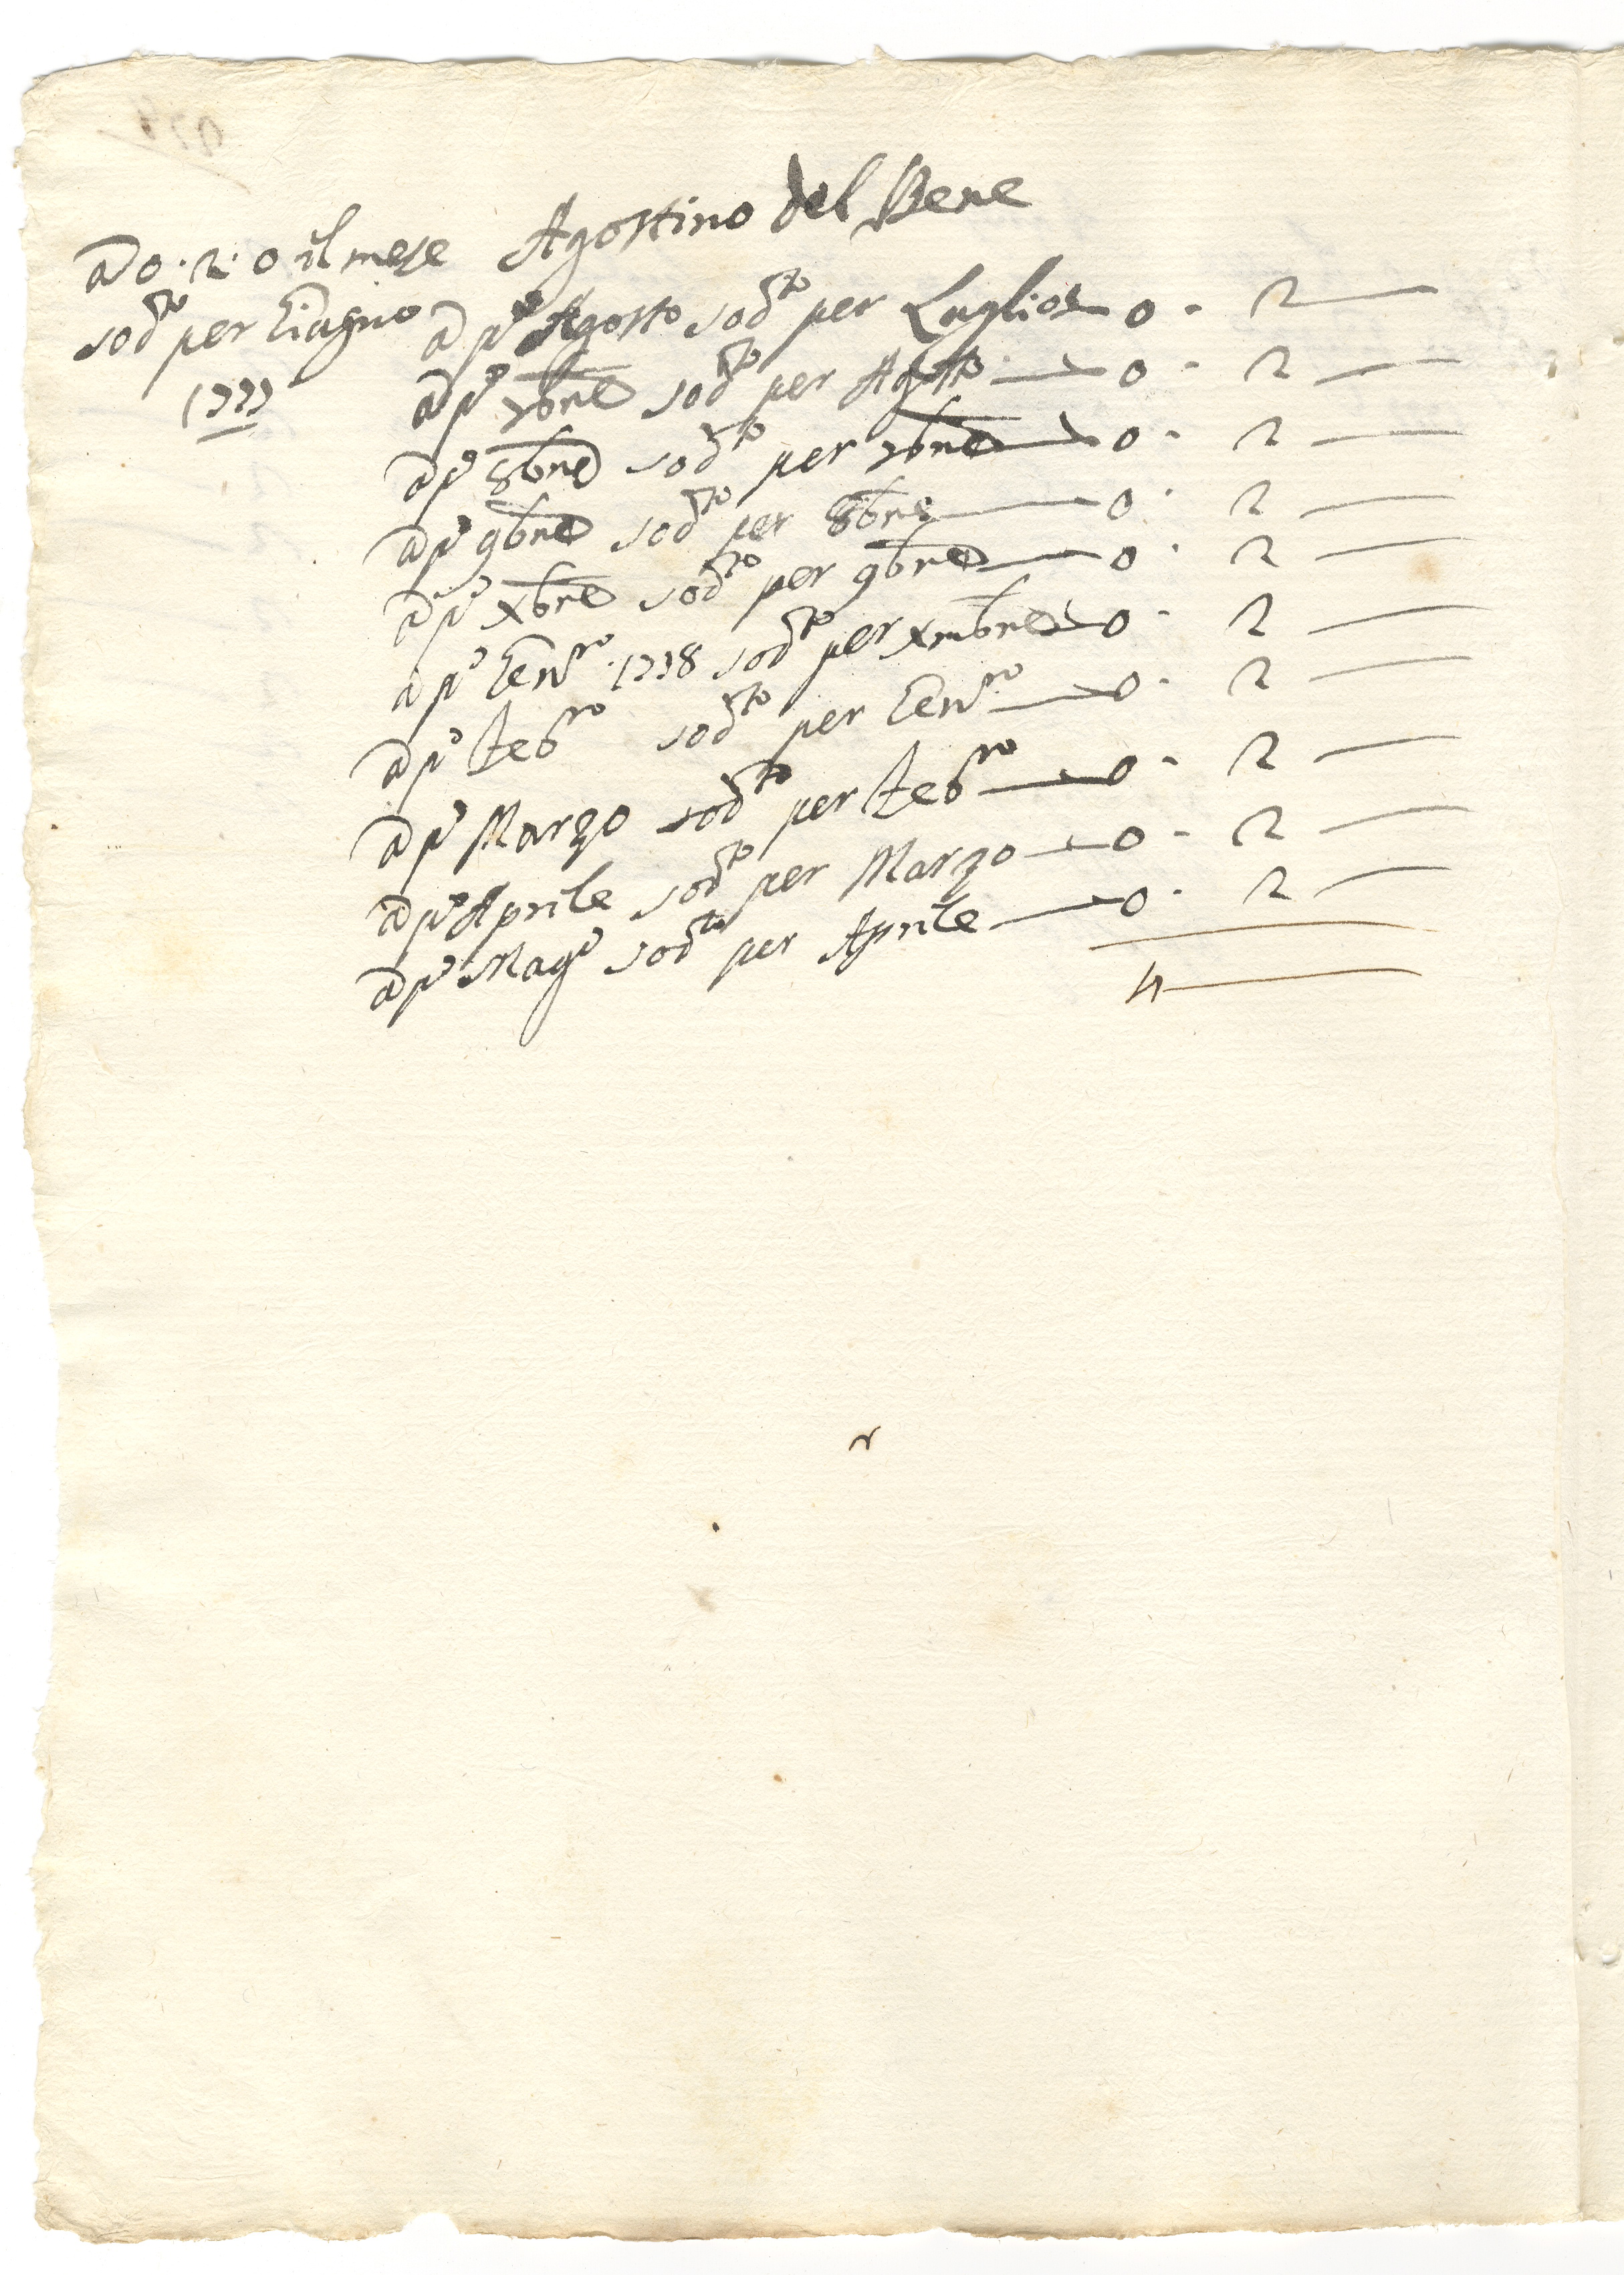 Agostino del Bene
a 0·2·0 il mese
sodto per Giugno
1777
a po Agosto sodto per Luglio 0 · 2
a po 7bre sodto per Agosto 0 · 2
a po 8bre sodto per 7bre 0 · 2
a po 9bre sodto per 8bre 0 · 2
a po Xbre sodto per 9bre 0 · 2
a po Genro 1778 sodto per Xmbre 0 · 2
a po Febro sodto per Genro 0 · 2
a po Marzo sodto per Febro 0 · 2
a po Aprile sodto per Marzo 0 · 2
a po Mago sodto per Aprile 0 · 2